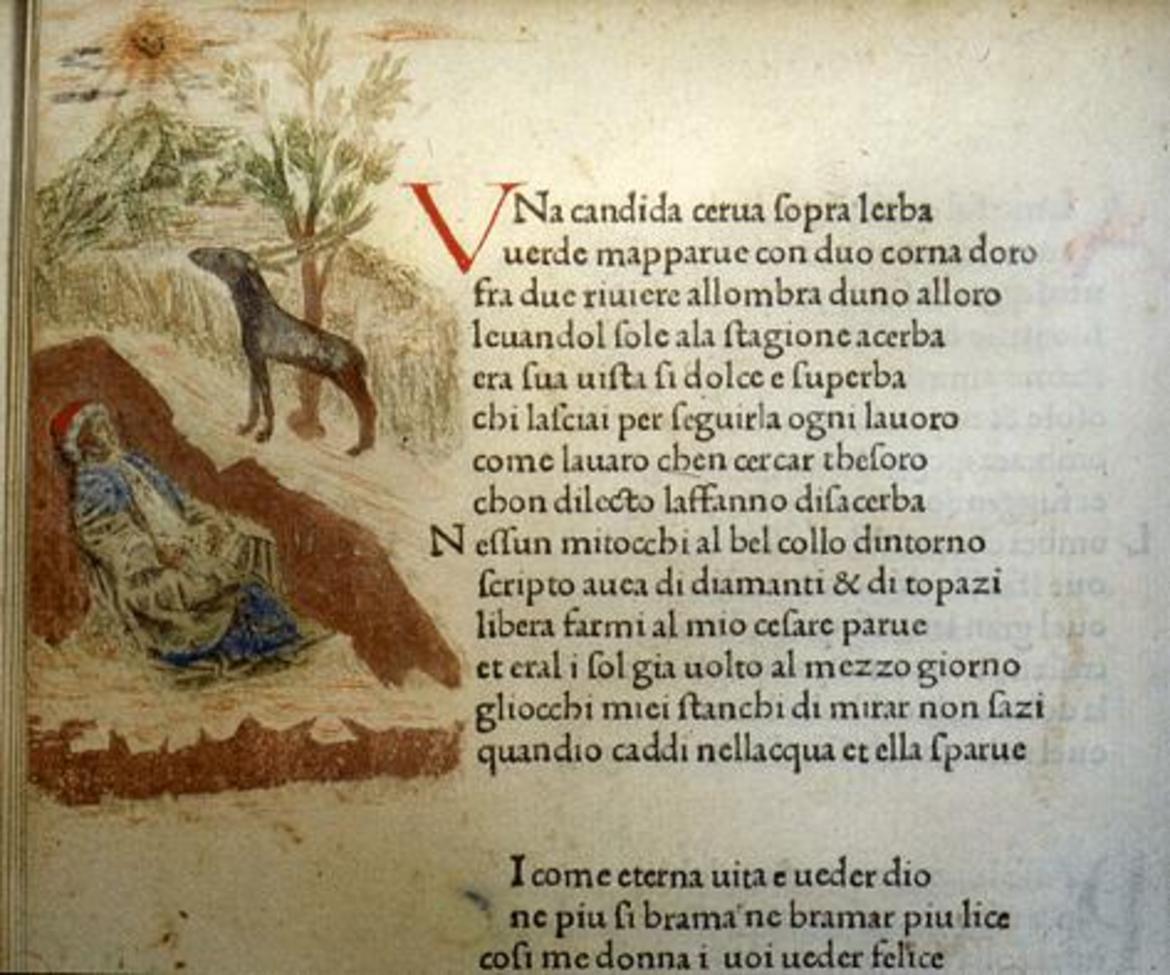 VNa candida cerua ſopra lerba
uerde mapparue con duo corna doro
fra due riuiere allombra duno alloro
leuandol ſole ala ſtagione acerba
era ſua uiſta ſi dolce e ſuperba
chi laſciai per ſeguirla ogni lauoro
come lauaro chen cercar theſoro
chon dilecto laffanno diſacerba
N eſſun mitocchi al bel collo dintorno
ſcripto auea di diamanti & di topazi
libera farmi al mio ceſare parue
et eral i ſol gia uolto al mezzo giorno
gliocchi miei ſtanchi di mirar non ſazi
quandio caddi nellacqua et ella ſparue
I come eterna uita e ueder dio
ne piu ſi brama ne bramar piu lice
coſi me donna i uoi ueder felice